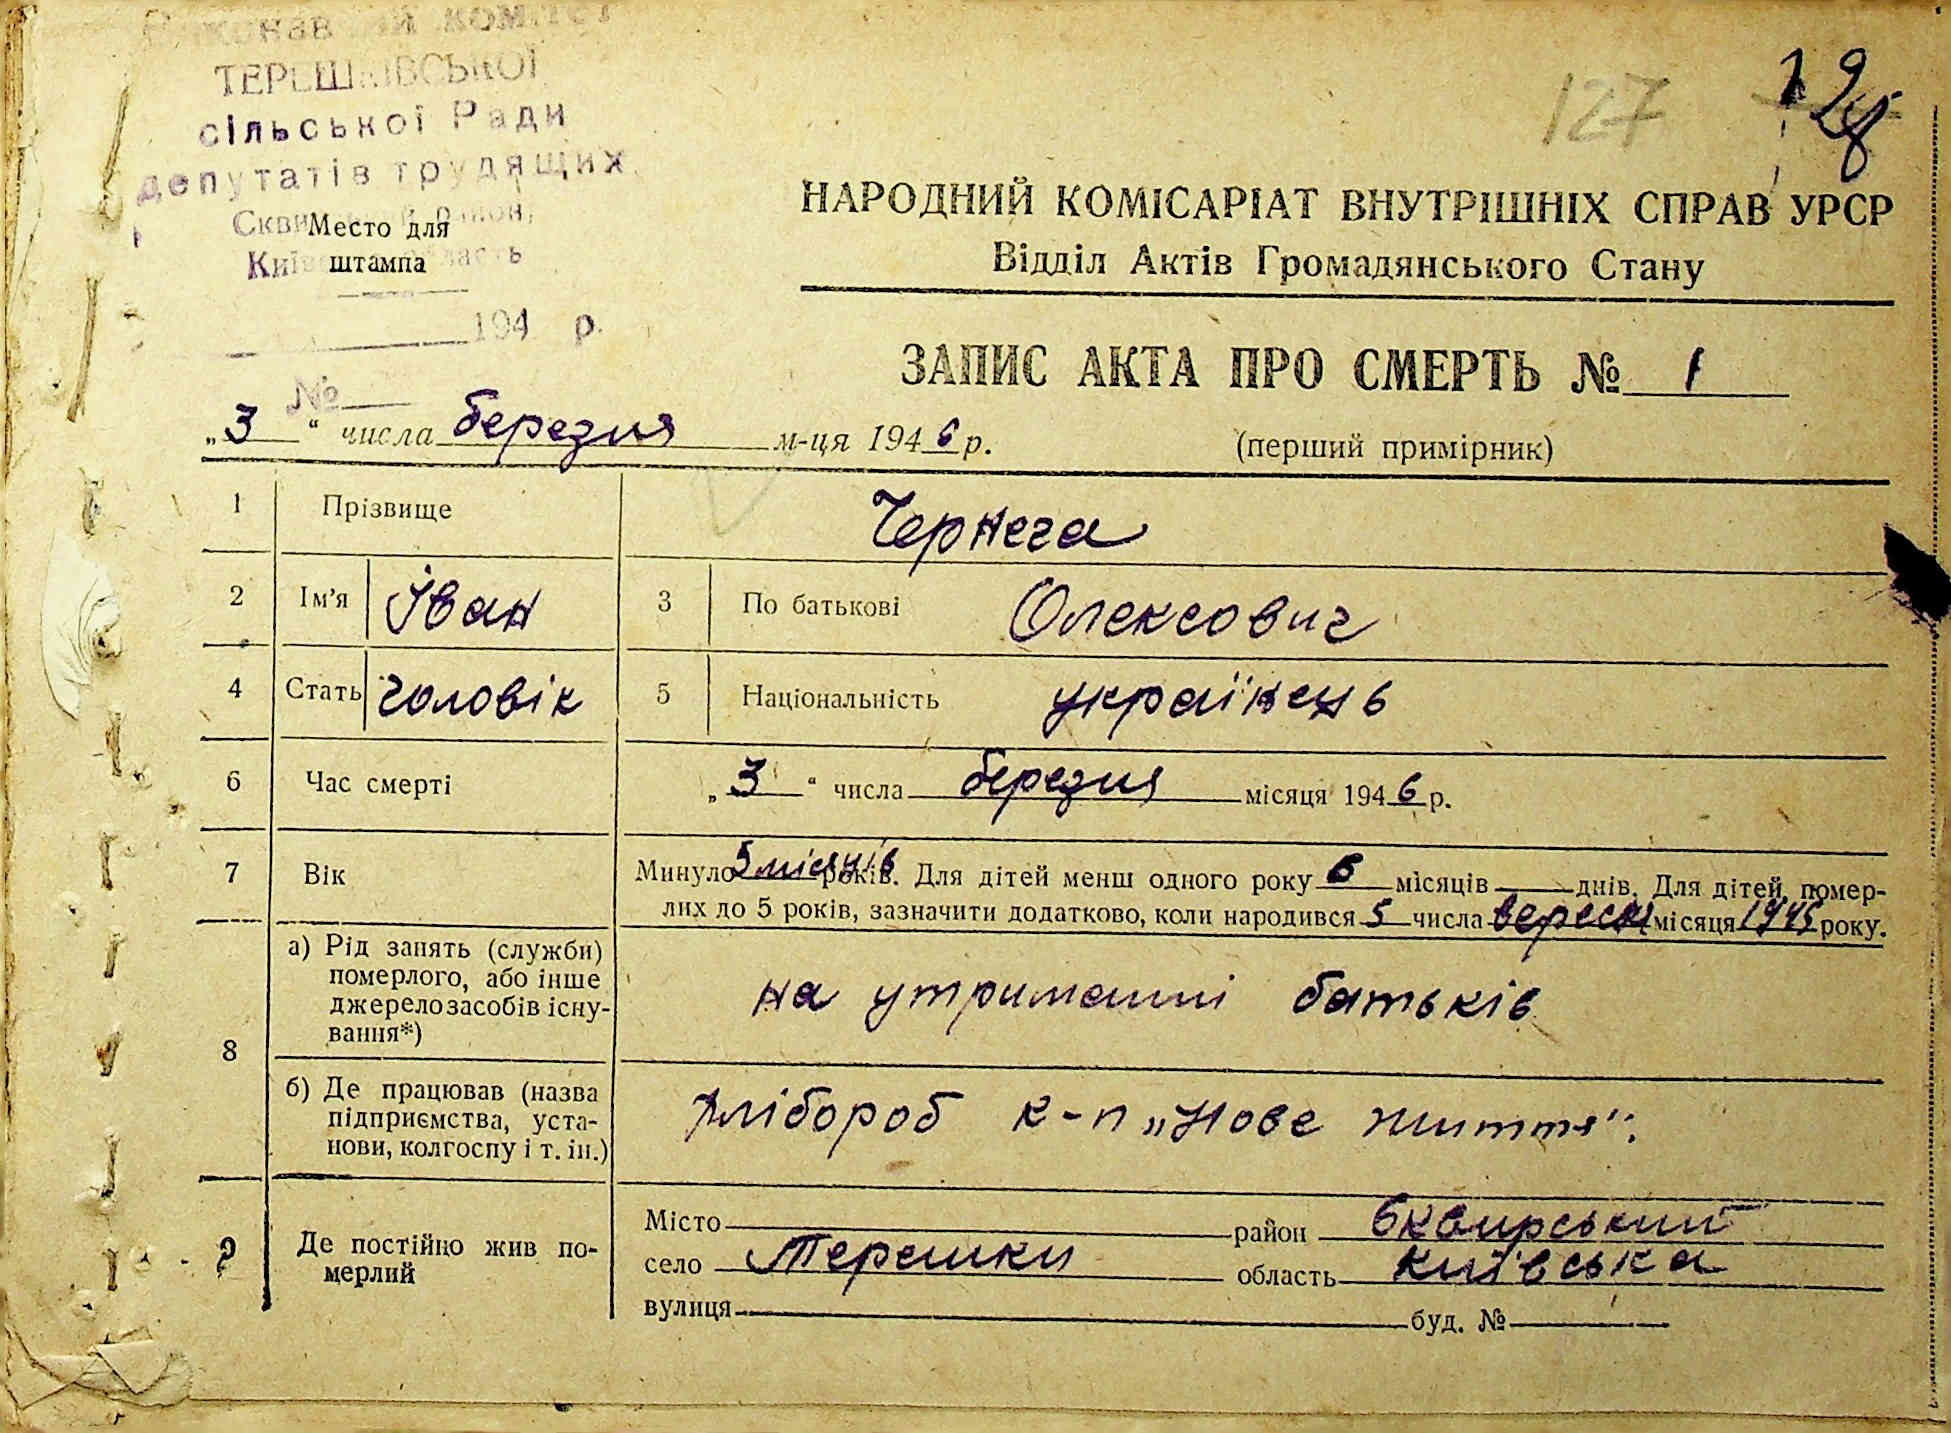 ТЕРЕШКІВСЬКОЇ
сільської Ради
депутатів трудящих
Место для
штампа
194 р.
№
127
НАРОДНИЙ КОМІСАРІАТ ВНУТРІШНІХ СПРАВ УРСР
Відділ Актів Громадянського Стану
ЗАПИС АКТА ПРО СМЕРТЬ № 1
„3“ числа березня м-ця 1946 р.
(перший примірник)
1 Прізвище Чернега
2 Ім'я Іван 3 По батькові Олексович
4 Стать чоловік 5 Національність українець
6 Час смерті „3“ числа березня місяця 1946 р.
7 Вік Минуло 5 місяців років. Для дітей менш одного року 6 місяців днів. Для дітей, помер-
лих до 5 років, зазначити додатково, коли народився 5 числа вересня місяця 1945 року.
8 а) Рід занять (служби)
померлого, або інше
джерело засобів існу-
вання*)
на утриманні батьків
б) Де працював (назва
підприємства, уста-
нови, колгоспу і т. ін.)
хлібороб к-п „Нове життя“.
9 Де постійно жив по-
мерлий
Місто район Сквирський
село Терешки область Київська
вулиця буд. №